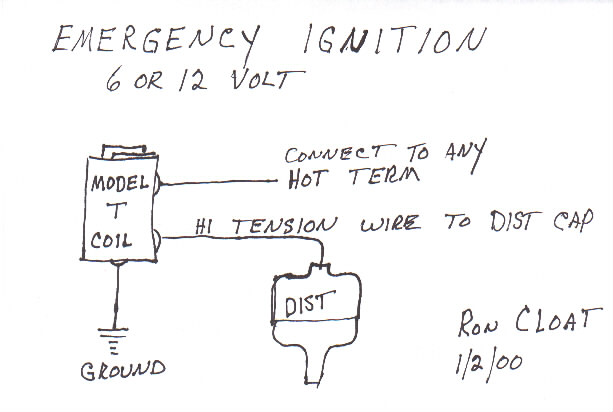 EMERGENCY IGNITION
6 OR 12 VOLT
CONNECT TO ANY
HOT TERM
MODEL
T
COIL
HI TENSION WIRE TO DIST CAP
DIST
GROUND
RON CLOAT
1/2/00